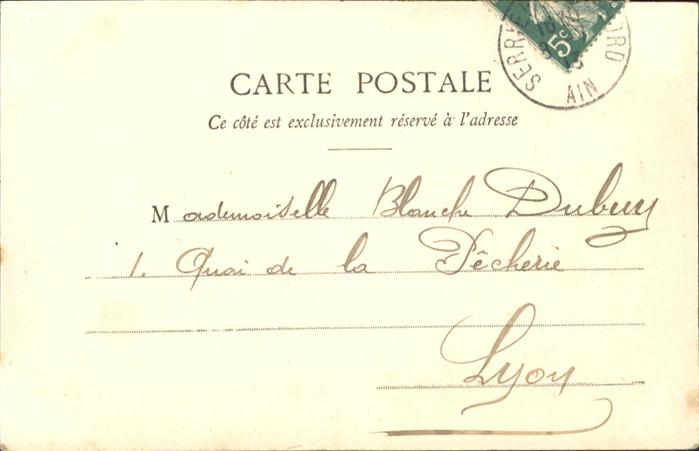 5c
SERRI
AIN
CARTE POSTALE
Ce côté est exclusivement réservé à l'adresse
Mademoiselle Blanche Dubuy
1. Quai de la Pêcherie
Lyon